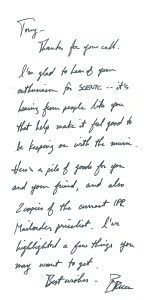 Tony—
Thanks for your call.
I'm glad to hear of your
enthusiasm for SCENIC -- it's
having from people like you
that help make it feel good to
be keeping on with the music.
Here's a pile of goods for you
and your friend, and also
2 copies of the current IPR
Mailorder pricelist. I've
highlighted a few things you
may want to get.
Best wishes -